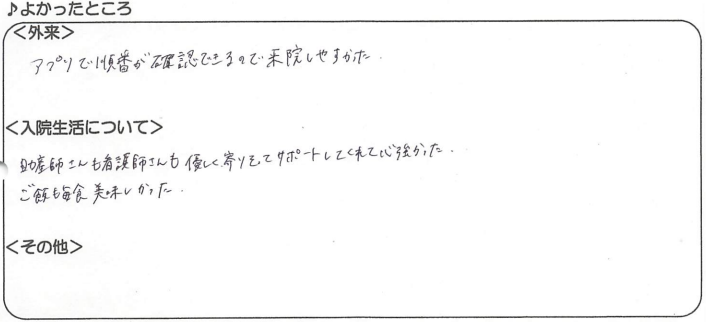 ♪よかったところ
＜外来＞
アプリで順番が確認できるので来院しやすかった.
＜入院生活について＞
助産師さんも看護師さんも優しく寄りそってサポートしてくれて心強かった.
ご飯も毎食美味しかった.
＜その他＞